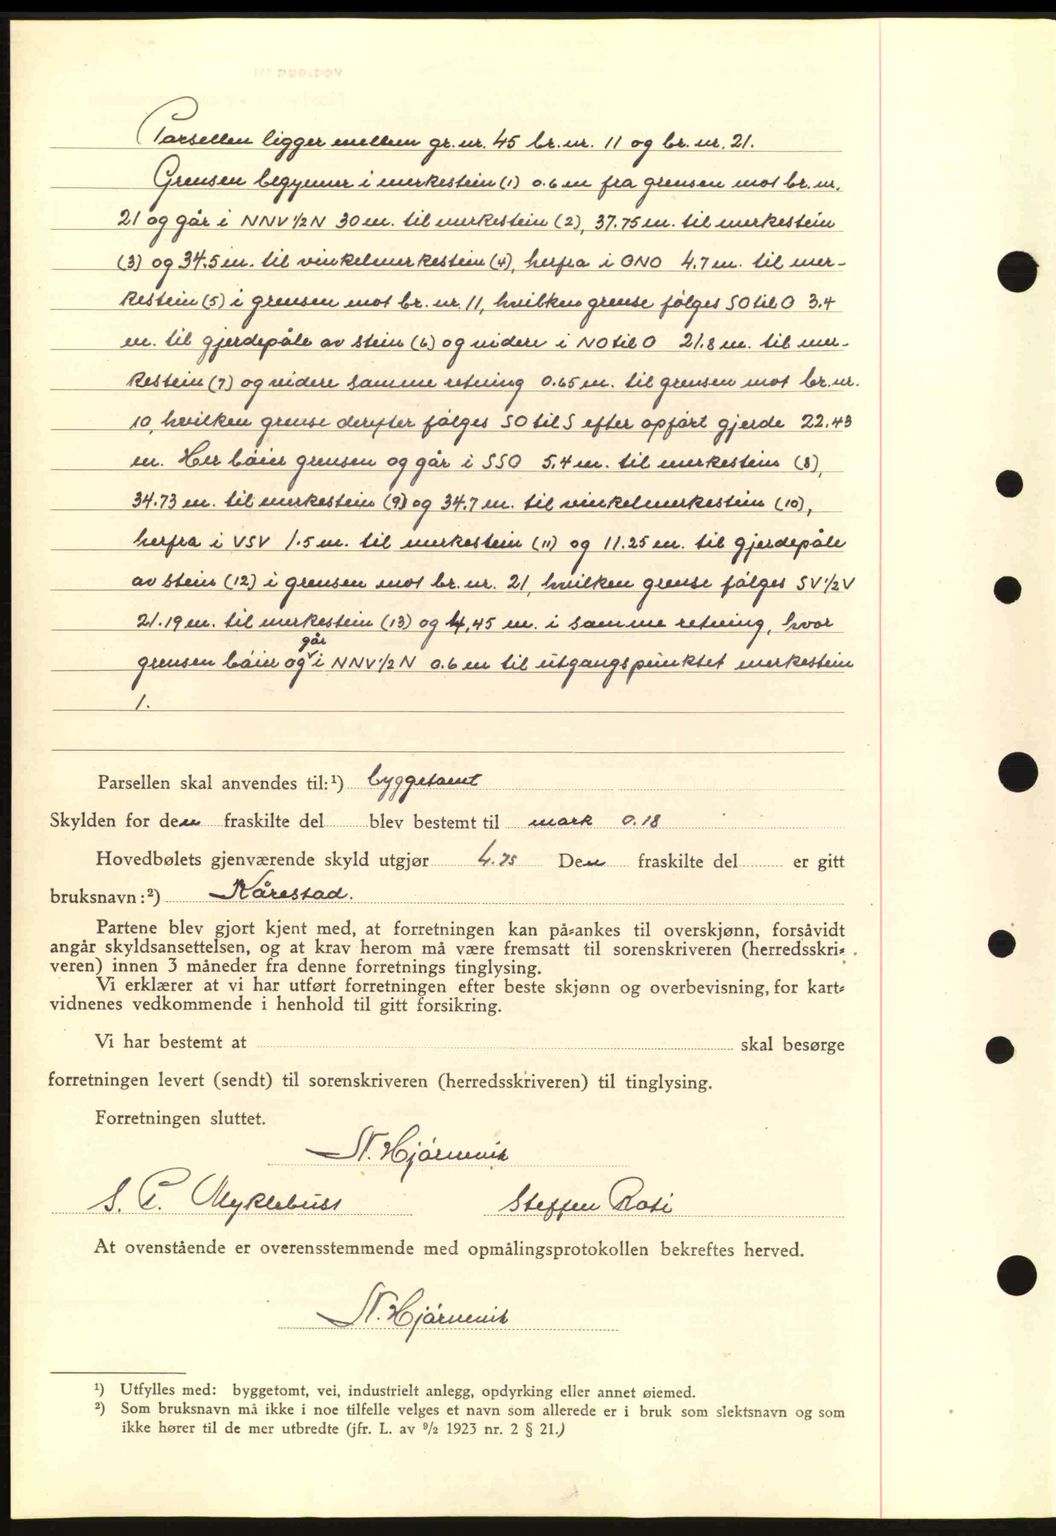 Parsellen ligger mellem gr. nr. 45 br. nr. 11 og br. nr. 21.
Grensen begynner i merkestein (1) 0.6 m fra grensen mot br. nr.
21 og går i NNV 1/2 N 30 m. til merkestein (2), 37.75 m. til merkestein
(3) og 34.5 m. til vinkelmerkestein (4), herfra i ONO 4.7 m. til mer-
kestein (5) i grensen mot br. nr. 11, hvilken grense følges SO til O 3.4
m. til gjerdepåle av stein (6) og videre i NO til O 21.8 m. til mer-
kestein (7) og videre samme retning 0.65 m. til grensen mot br. nr.
10, hvilken grense derefter følges SO til S efter opført gjerde 22.43
m. Her bøier grensen og går i SSO 5.4 m. til merkestein (8),
34.73 m. til merkestein (9) og 34.7 m. til vinkelmerkestein (10),
herfra i VSV 1.5 m. til merkestein (11) og 11.25 m. til gjerdepåle
av stein (12) i grensen mot br. nr. 21, hvilken grense følges SV 1/2 V
21.19 m. til merkestein (13) og 4,45 m. i samme retning, hvor
grensen bøier og går i NNV 1/2 N 0.6 m til utgangspunktet merkestein
1.
Parsellen skal anvendes til:¹) byggetomt
Skylden for den fraskilte del blev bestemt til mark 0.18
Hovedbølets gjenværende skyld utgjør 4.75 Den fraskilte del er gitt
bruksnavn:²) Kårestad.
Partene blev gjort kjent med, at forretningen kan på-ankes til overskjønn, forsåvidt
angår skyldsansettelsen, og at krav herom må være fremsatt til sorenskriveren (herredsskri-
veren) innen 3 måneder fra denne forretnings tinglysing.
Vi erklærer at vi har utført forretningen efter beste skjønn og overbevisning, for kart-
vidnenes vedkommende i henhold til gitt forsikring.
Vi har bestemt at skal besørge
forretningen levert (sendt) til sorenskriveren (herredsskriveren) til tinglysing.
Forretningen sluttet.
N. Hjørnevik
S. P. Myklebust Steffen Roti
At ovenstående er overensstemmende med opmålingsprotokollen bekreftes herved.
N. Hjørnevik
¹) Utfylles med: byggetomt, vei, industrielt anlegg, opdyrking eller annet øiemed.
²) Som bruksnavn må ikke i noe tilfelle velges et navn som allerede er i bruk som slektsnavn og som
ikke hører til de mer utbredte (jfr. L. av 9/2 1923 nr. 2 § 21.)